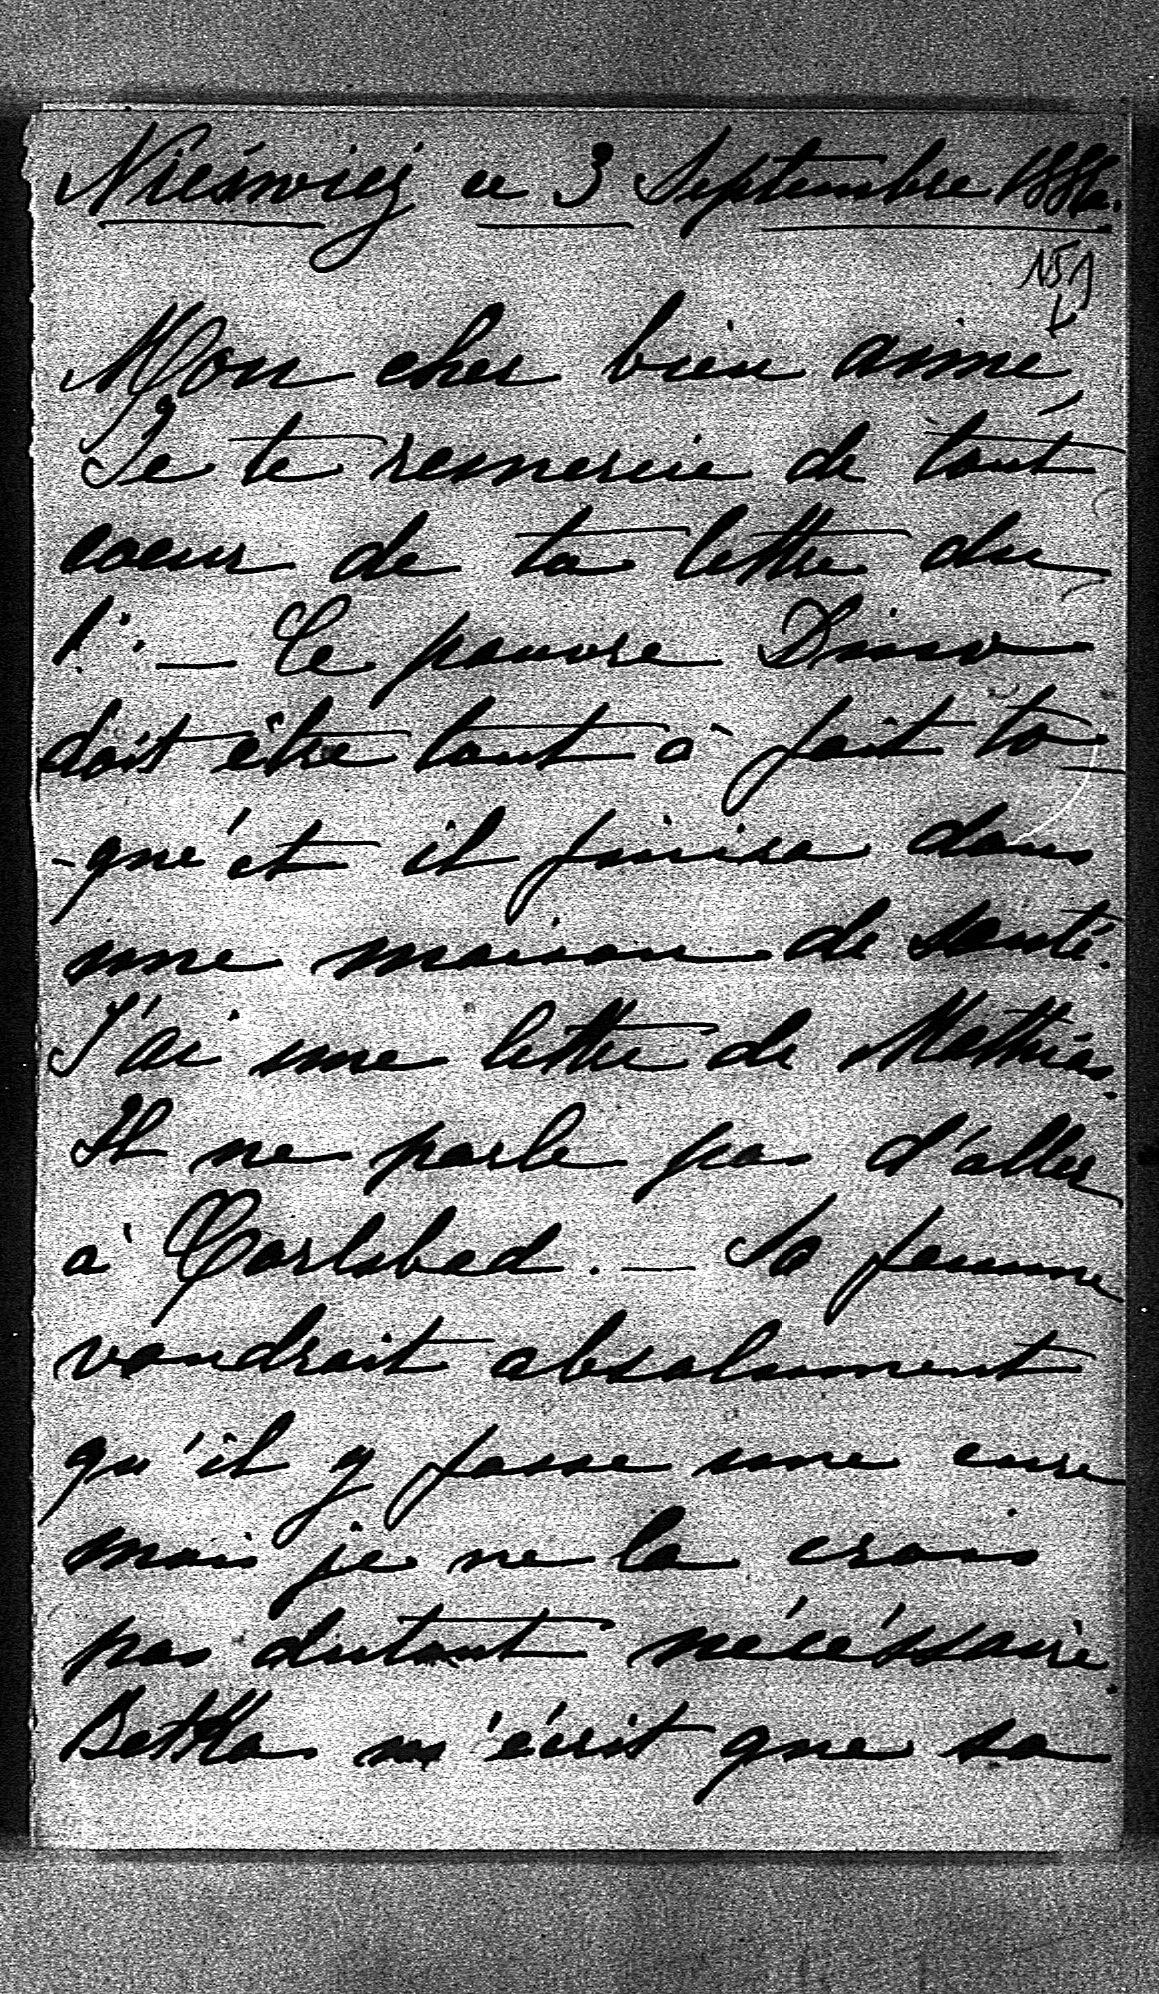 Nieświez ce 3 Septembre 1886.
151
Mon cher bien aimé,
Je te remercie de tout
coeur de ta lettre du
1.. — Le pauvre Dino
doit être tout à fait to-
-qué et il finira dans
une maison de santé.
J'ai une lettre de Mathias.
Il ne parle pas d'aller
à Carlsbad. — Sa femme
voudrait absolument
qu'il y fasse une cure
mais je ne la crois
pas dutout nécéssaire.
Betka m'écrit que sa